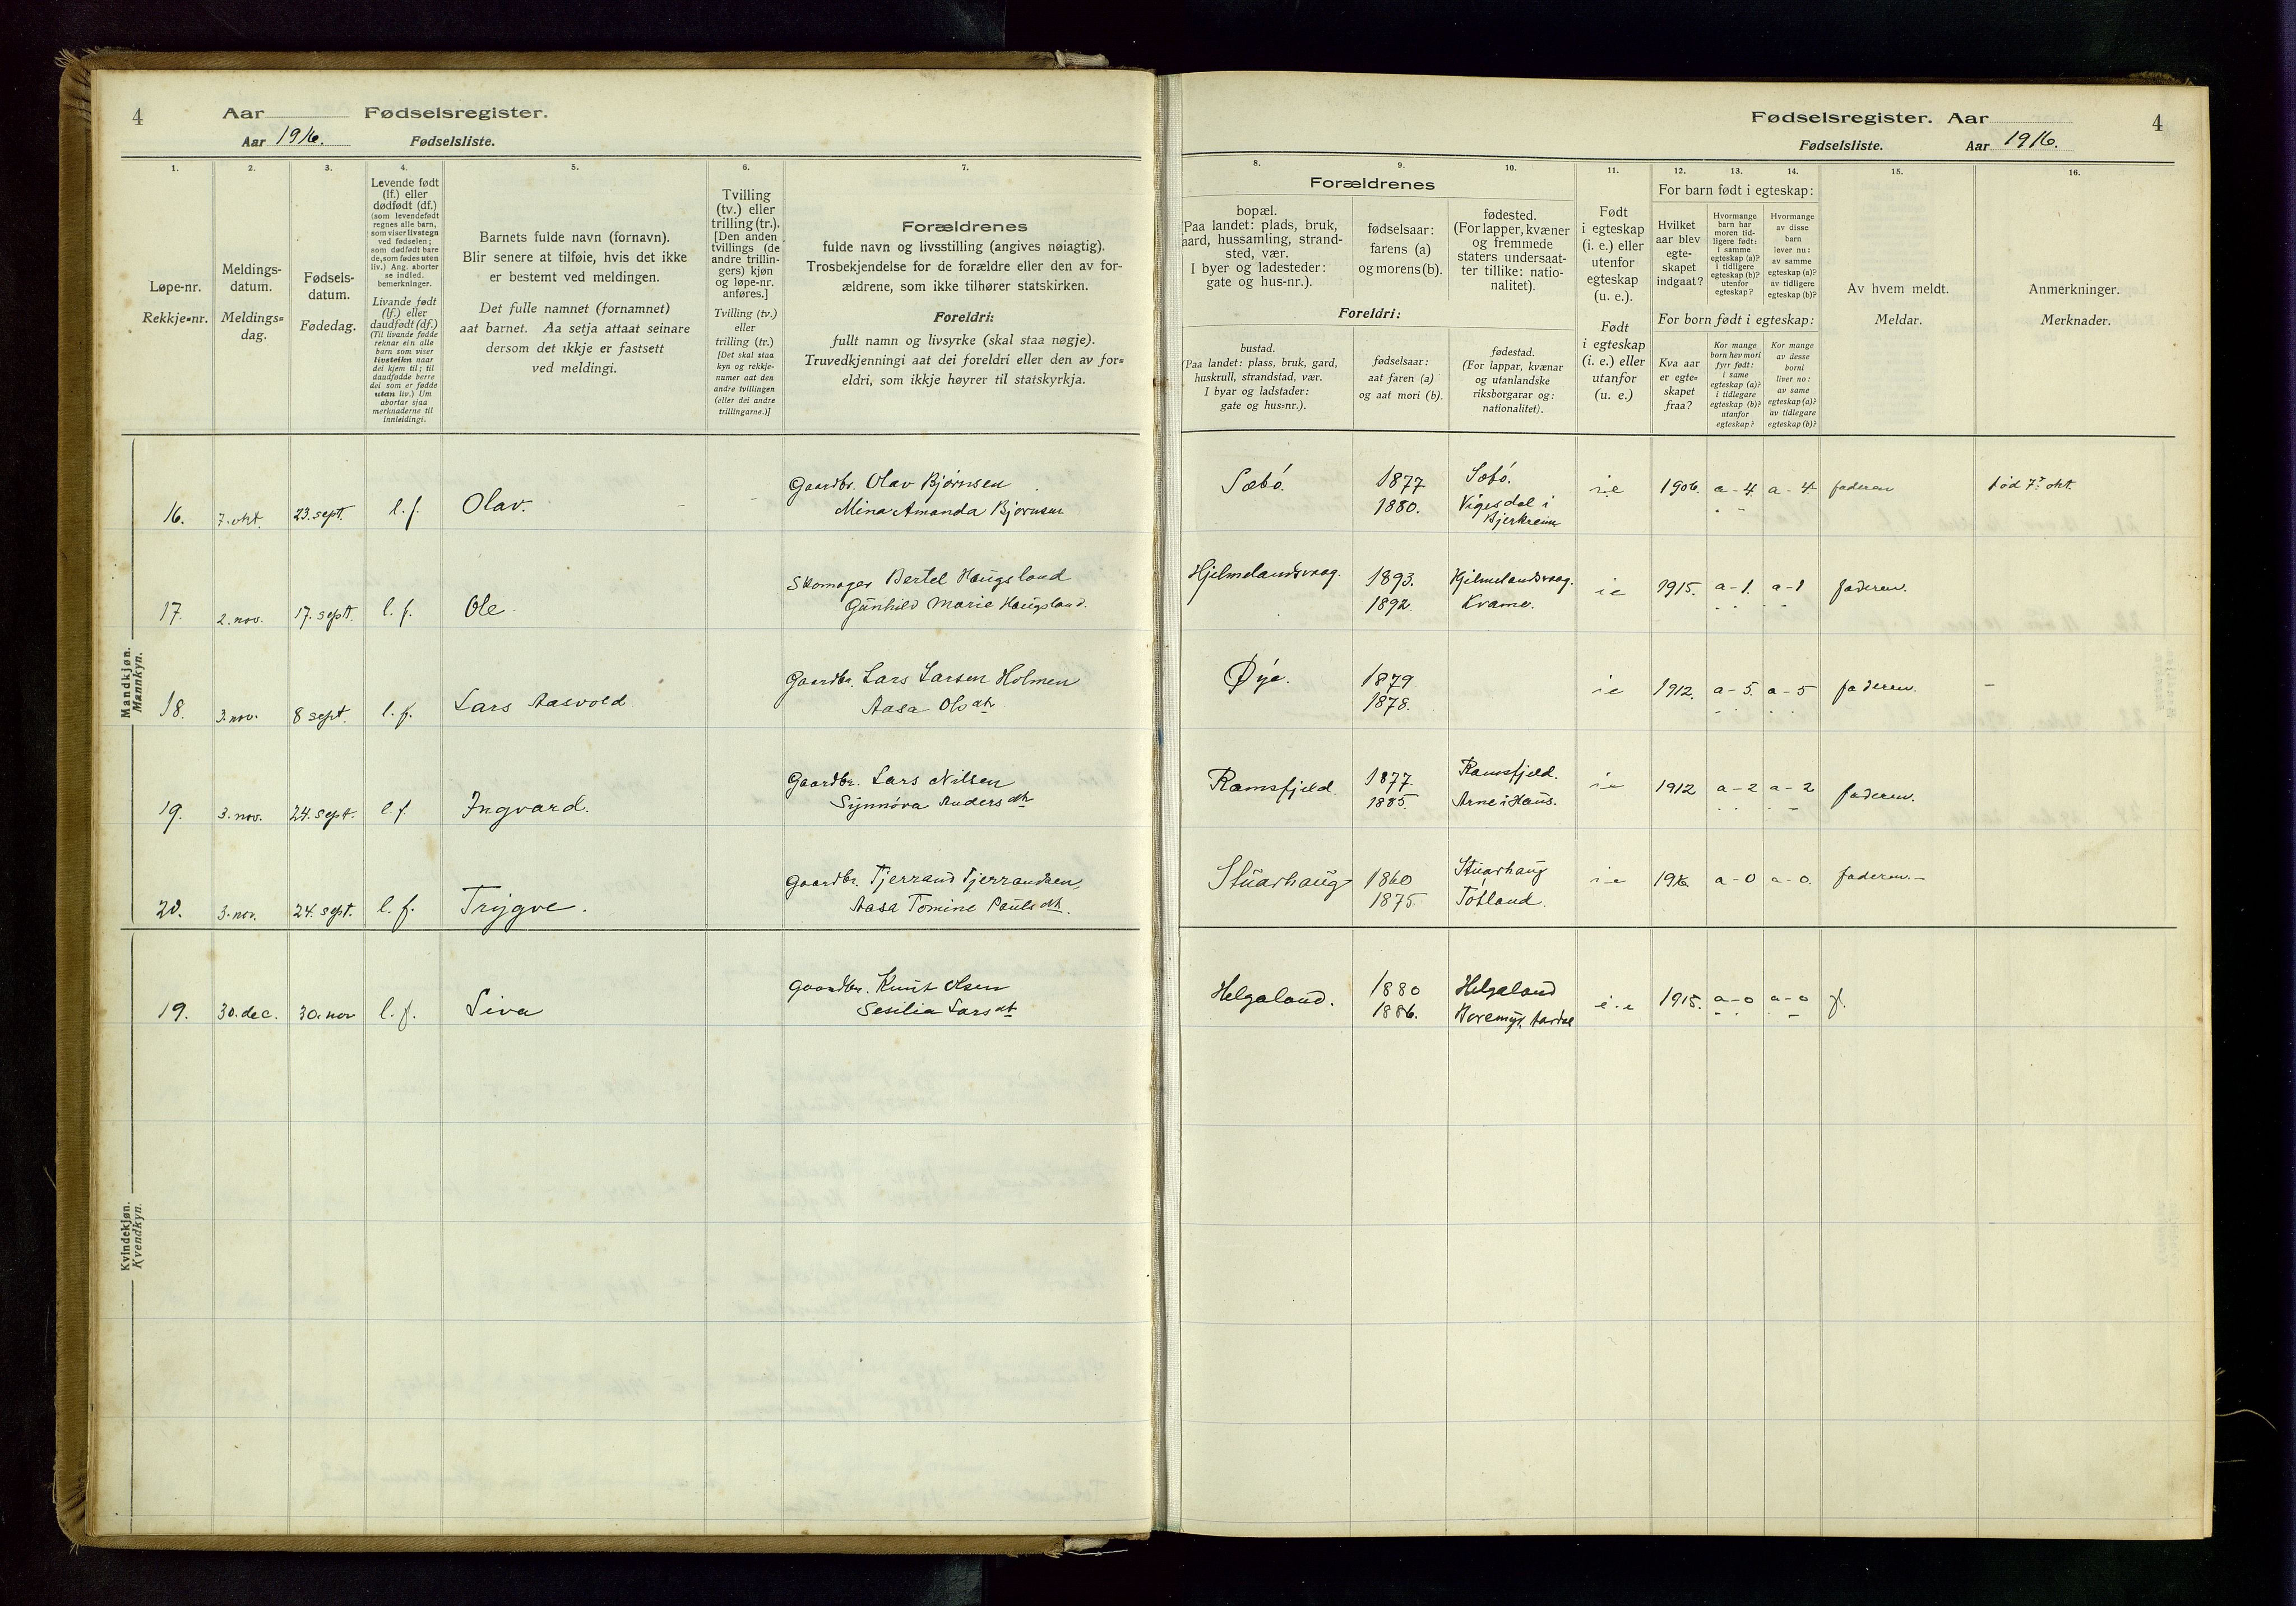 4 Aar Fødselsregister.
Aar 1916. Fødselsliste.
Fødselsregister. Aar 4
Fødselsliste. Aar 1916.
1. 2. 3. 4. 5. 6. 7.
Løpe-nr.
Rekkje=nr.
Meldings-
datum.
Meldings=
dag.
Fødsels-
datum.
Fødedag.
Levende født
(lf.) eller
dødfødt (df.)
(som levendefødt
regnes alle barn,
som viser livstegn
ved fødselen;
som dødfødt bare
de, som fødes uten
liv.) Ang. aborter
se indled.
bemerkninger.
Livande født
(lf.) eller
daudfødt (df.)
(Til livande fødde
reknar ein alle
barn som viser
livsteikn naar
dei kjem til; til
daudfødde berre
dei som er fødde
utan liv.) Um
abortar sjaa
merknaderne til
innleidingi.
Barnets fulde navn (fornavn).
Blir senere at tilføie, hvis det ikke
er bestemt ved meldingen.
Det fulle namnet (fornamnet)
aat barnet. Aa setja attaat seinare
dersom det ikkje er fastsett
ved meldingi.
Tvilling
(tv.) eller
trilling (tr.).
[Den anden
tvillings (de
andre trillin-
gers) kjøn
og løpe-nr.
anføres.]
Tvilling (tv.)
eller
trilling (tr.)
[Det skal staa
kyn og rekkje-
numer aat den
andre tvillingen
(eller dei andre
trillingarne.)]
Forældrenes
fulde navn og livsstilling (angives nøiagtig).
Trosbekjendelse for de forældre eller den av for-
ældrene, som ikke tilhører statskirken.
Foreldri:
fullt namn og livsyrke (skal staa nøgje).
Truvedkjenningi aat dei foreldri eller den av for=
eldri, som ikkje høyrer til statskyrkja.
8. 9. 10. 11. 12. 13. 14. 15. 16.
Forældrenes
bopæl.
(Paa landet: plads, bruk,
gaard, hussamling, strand-
sted, vær.
I byer og ladesteder:
gate og hus-nr.).
fødselsaar:
farens (a)
og morens (b).
fødested.
(For lapper, kvæner
og fremmede
staters undersaat-
ter tillike: natio-
nalitet).
Foreldri:
bustad.
(Paa landet: plass, bruk, gard,
huskrull, strandstad, vær.
I byar og ladstader:
gate og hus=nr.).
fødselsaar:
aat faren (a)
og aat mori (b).
fødestad.
(For lappar, kvænar
og utanlandske
riksborgarar og:
nationalitet).
Født
i egteskap
(i. e.) eller
utenfor
egteskap
(u. e.).
Født
i egteskap
(i. e.) eller
utanfor
(u. e.)
For barn født i egteskap:
Hvilket
aar blev
egte-
skapet
indgaat?
Hvormange
barn har
moren tid-
ligere født:
i samme
egteskap (a)?
i tidligere
egteskap (b)?
utenfor
egteskap?
Hvormange
av disse
barn
lever nu:
av samme
egteskap (a)?
av tidligere
egteskap (b)?
For born født i egteskap:
Kva aar
er egte=
skapet
fraa?
Kor mange
born hev mori
fyrr født:
i same
egteskap (a)?
i tidlegare
egteskap (b)?
utanfor
egteskap?
Kor mange
av desse
borni
liver no:
av same
egteskap (a)?
av tidlegare
egteskap (b)?
Av hvem meldt.
Meldar.
Anmerkninger.
Merknader.
Mandkjøn.
Mannkyn.
16. 7. okt. 23. sept. l. f. Olav. Gaardbr. Olav Bjørnsen
Mina Amanda Bjørnsen
Sæbö. 1877 Sæbö. i.e 1906. a - 4 a - 4 faderen död 7. okt.
1880. Vigesdal i
Bjerkreim
17. 2. nov. 17. sept. l. f. Ole. Skomager Bertel Haugsland
Gunhild Marie Haugsland.
Hjelmelandsvaag. 1893. Hjelmelandsvaag. i e 1915. a - 1. a - 1 faderen.
1892. Kvame.
18. 3. nov. 8 sept. l. f. Lars Aasvold Gaardbr. Lars Larsen Holmen
Aasa Olsdtr.
Øye. 1879. i e 1912. a - 5. a - 5 faderen. -
1878.
19. 3. nov. 24. sept. l f. Ingvard. Gaardbr. Lars Nilsen
Synnöva Andersdtr
Ramsfjeld. 1877. Ramsfjeld. i e 1912 a - 2 a - 2 faderen.
1885. Arne i Haus.
20. 3. nov. 24. sept. l. f. Trygve. Gaardbr. Tjerrand Tjerrandsen,
Aasa Tomine Paulsdtr.
Stuarhaug 1860 Stuarhaug i-e 1916. a - 0 a - 0. faderen. -
1875 Tötland.
Kvindekjøn.
Kvendkyn.
19. 30. dec. 30. nov l. f. Siva Gaardbr. Knut Olsen
Sesilia Larsdt
Helgaland. 1880 Helgaland i.e 1915. a - 0 a - 0 f.
1886. Aardal